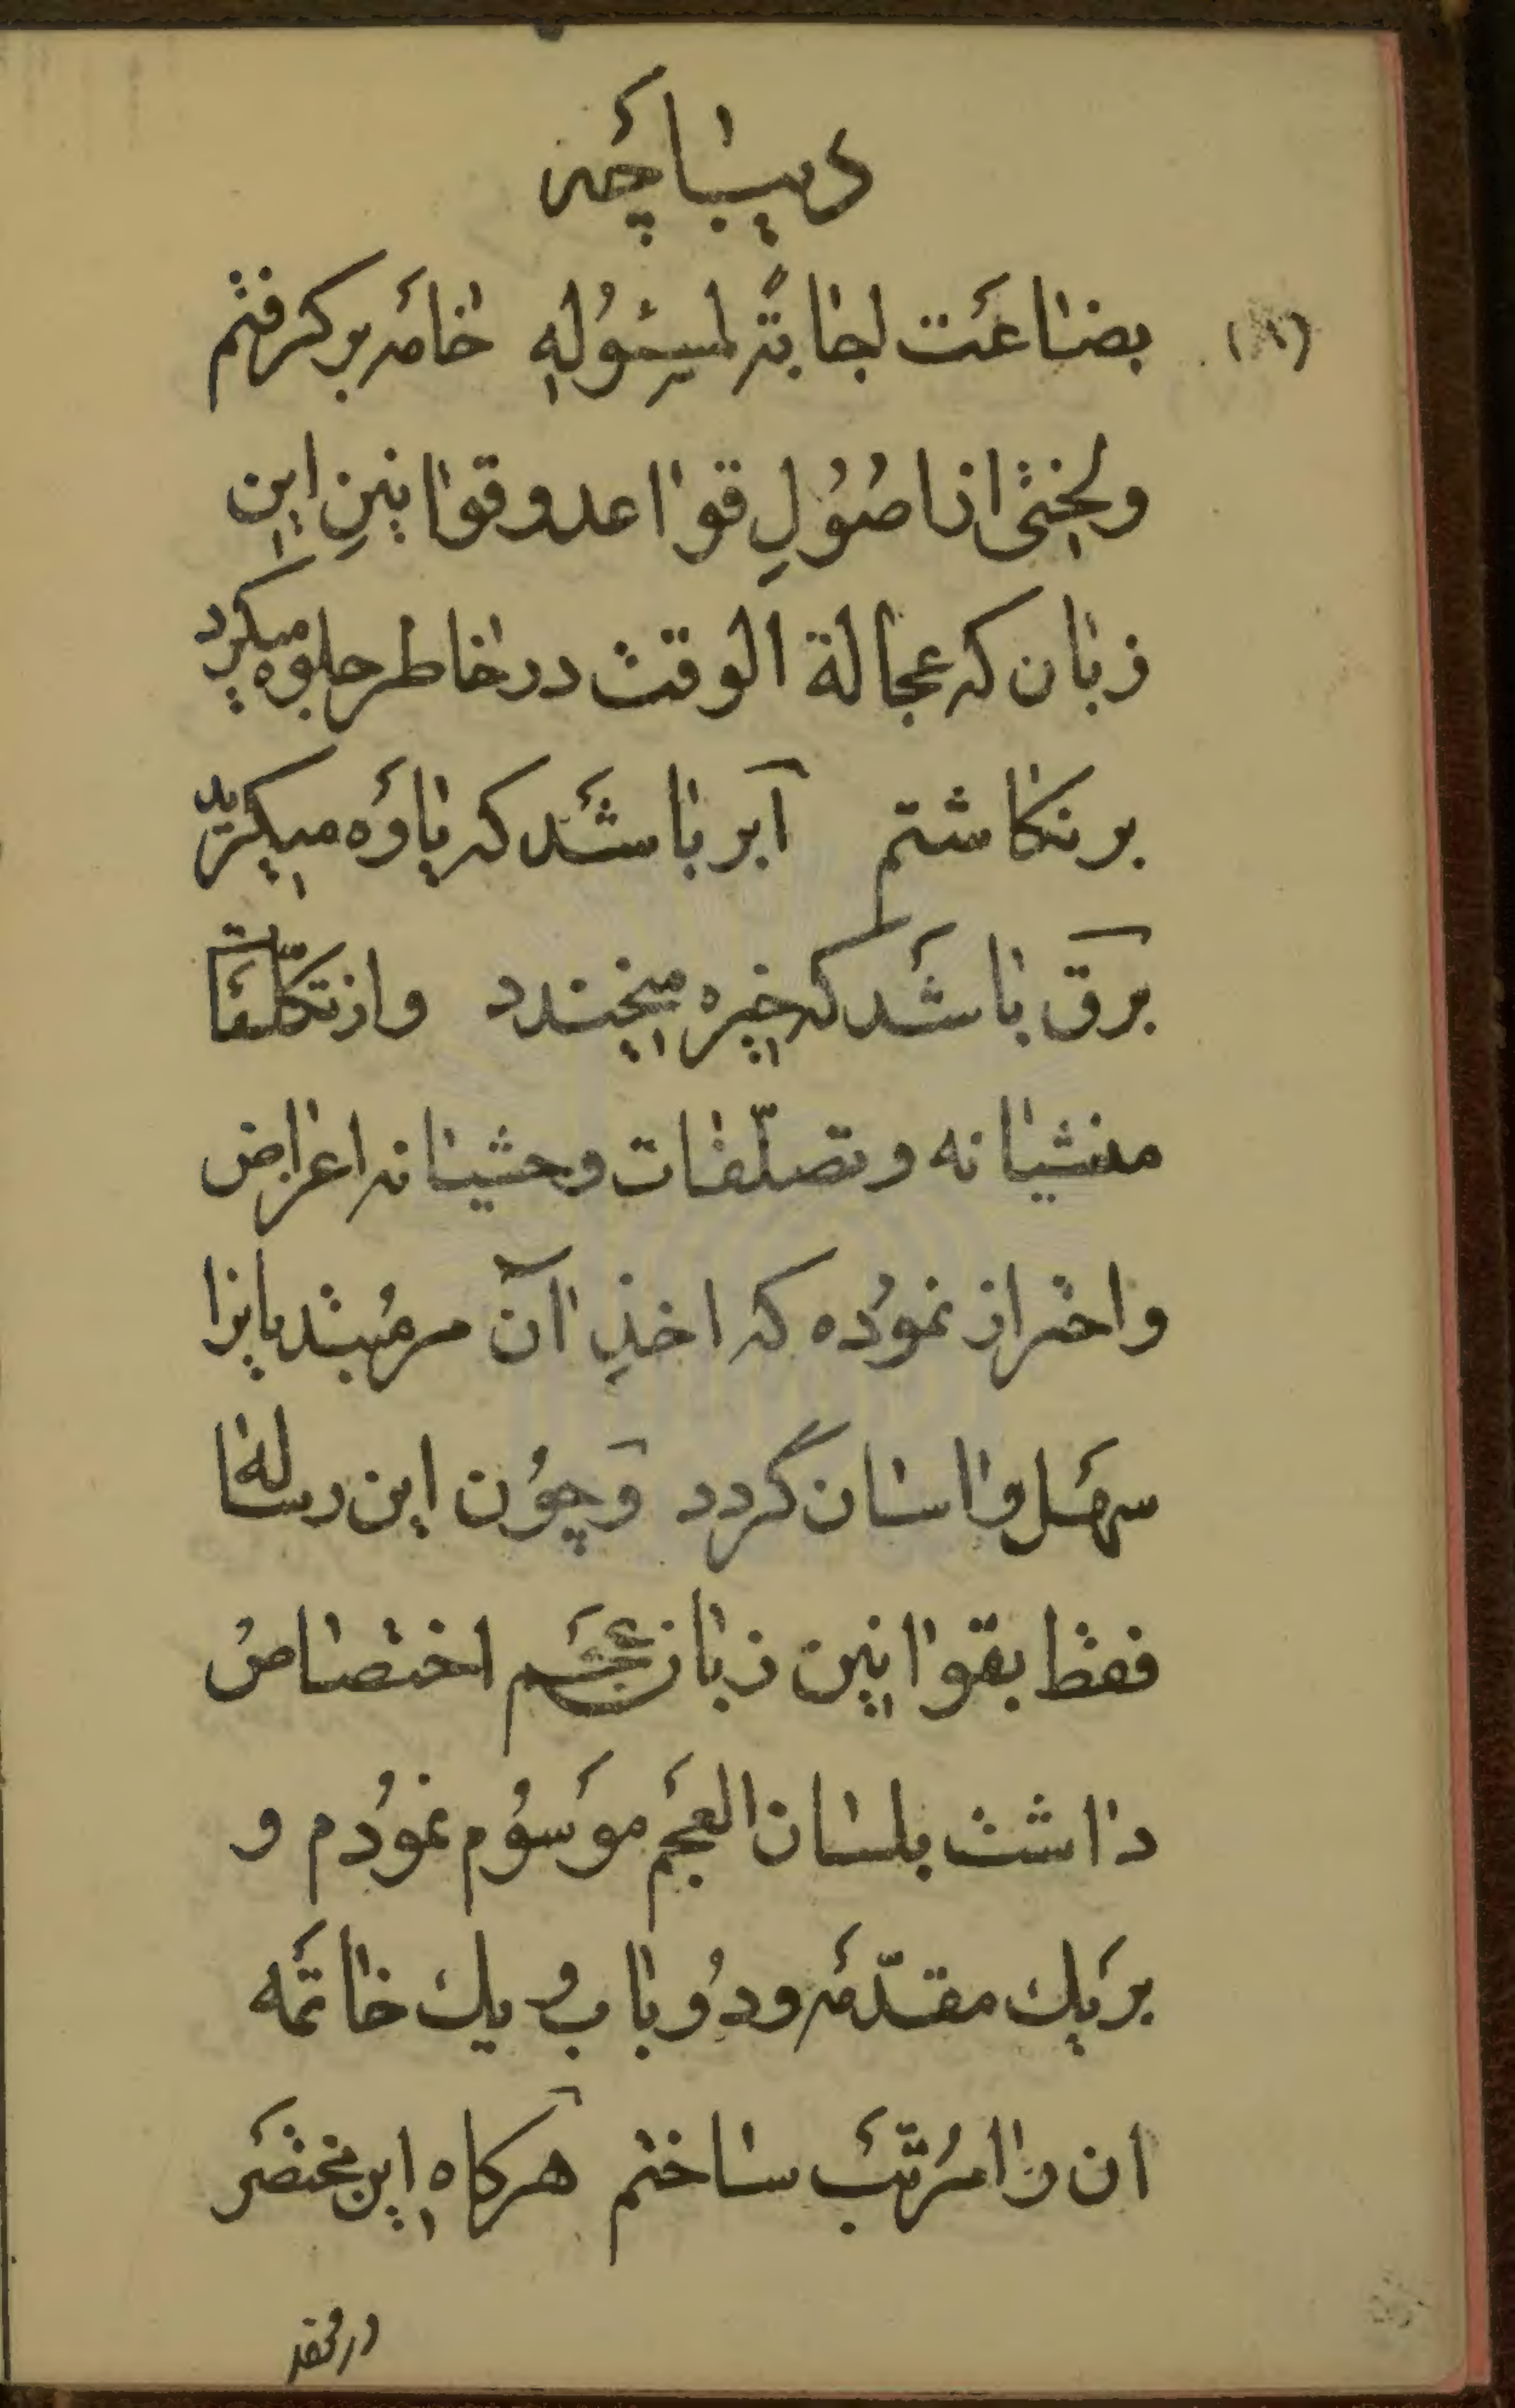 دیباچَه
(٨)
بضاعَت اجابةً لمسئُولِهِ خامَه برکرفتم
ولختی از اصُولِ قواعد و قوانینِ این
زبان که عجالة الوقت در خاطر جلوه میکرد
برنکاشتم آبر باشَد که یاوَه میکرید
برق باشَد که خیره میخندد و از تکلّفات
منشیانه و تصلّفات وحشیانه اعراض
و احتراز نمُوده که اخذِ آن مرمُبتدیانرا
سهَل و اسان گردد وَچوُن این رساله
فقط بقوانین زبان عجَم اختصاص
داشت بلسان العجَم موسُوم نمُودم و
بریَك مقدّمَه ودُو باب و یك خاتمَه
ان را مُرتّبَ ساختم هَرکاه این مختصَر
در موقع